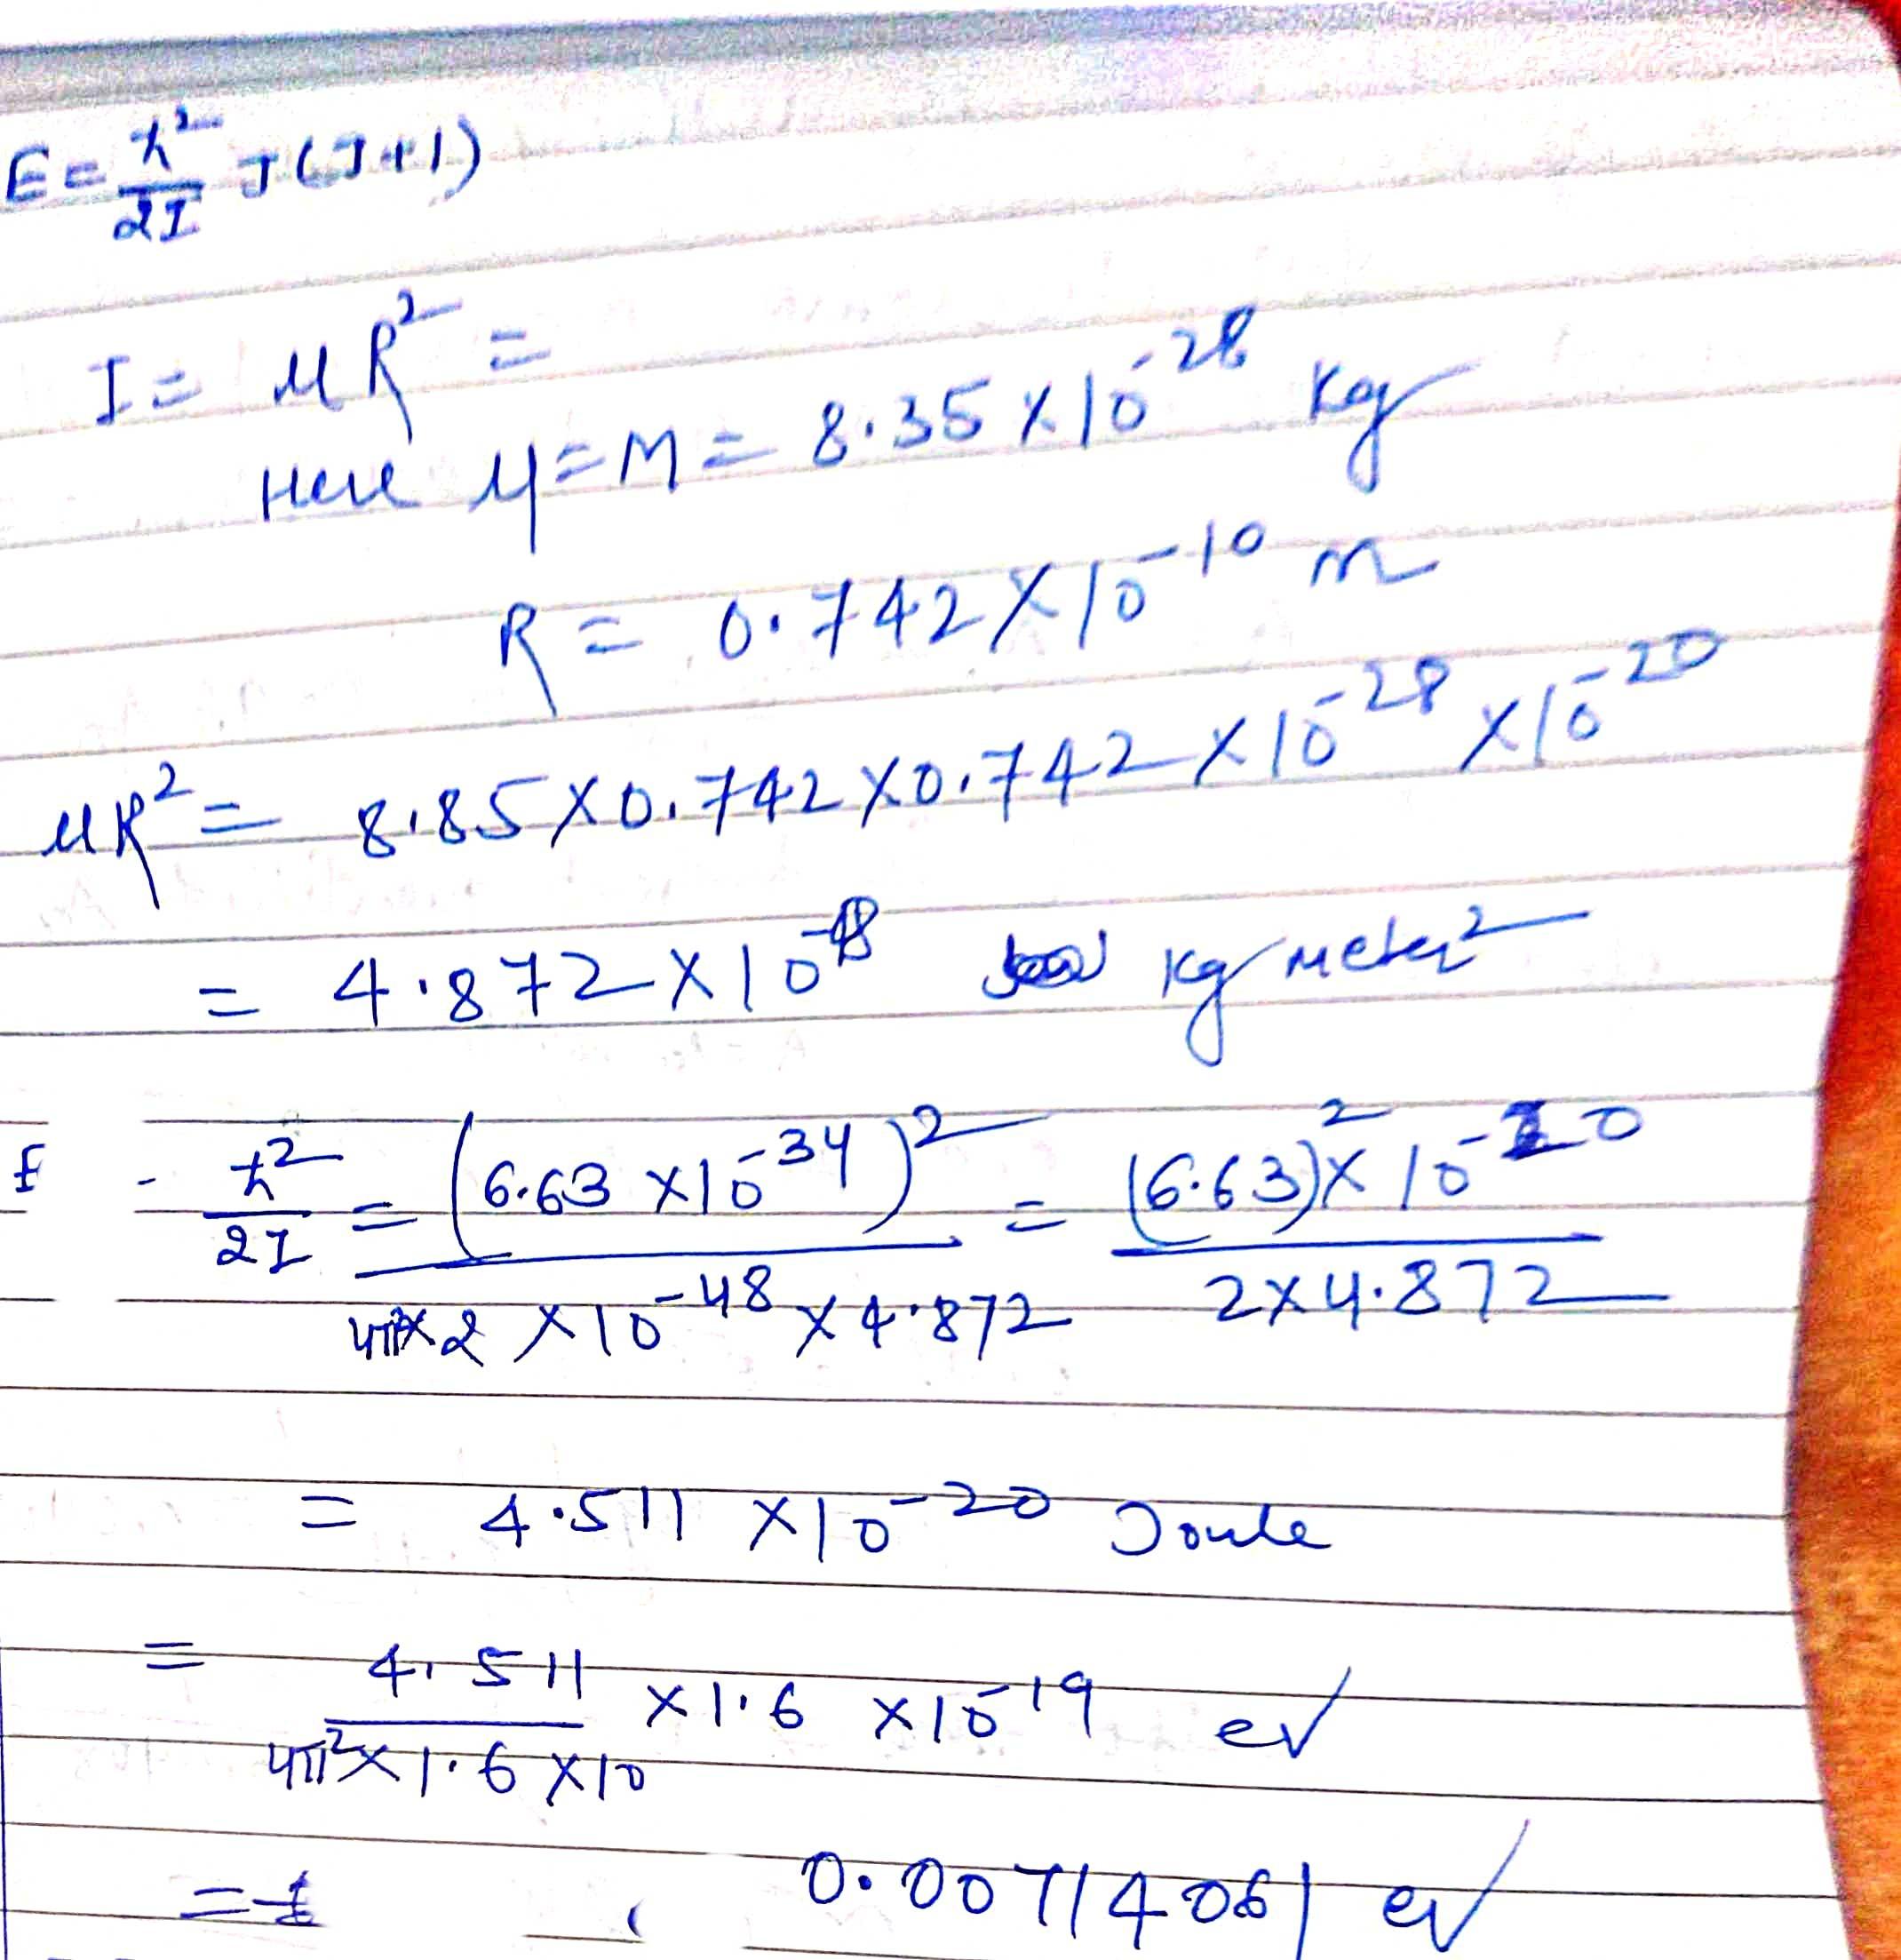 E = ℏ² / 2I J(J+1)
I = μR² =
Here μ = M = 8.35 × 10⁻²⁸ Kg
R = 0.742 × 10⁻¹⁰ m
μR² = 8.85 × 0.742 × 0.742 × 10⁻²⁸ × 10⁻²⁰
= 4.872 × 10⁻⁴⁸ kg meter²
ℏ² / 2I = (6.63 × 10⁻³⁴)² / 4π² × 2 × 10⁻⁴⁸ × 4.872 = (6.63)² × 10⁻²⁰ / 2 × 4.872
= 4.511 × 10⁻²⁰ Joule
= 4.511 / 4π² × 1.6 × 10 × 1.6 × 10⁻¹⁹ eV
= 0.00714061 eV